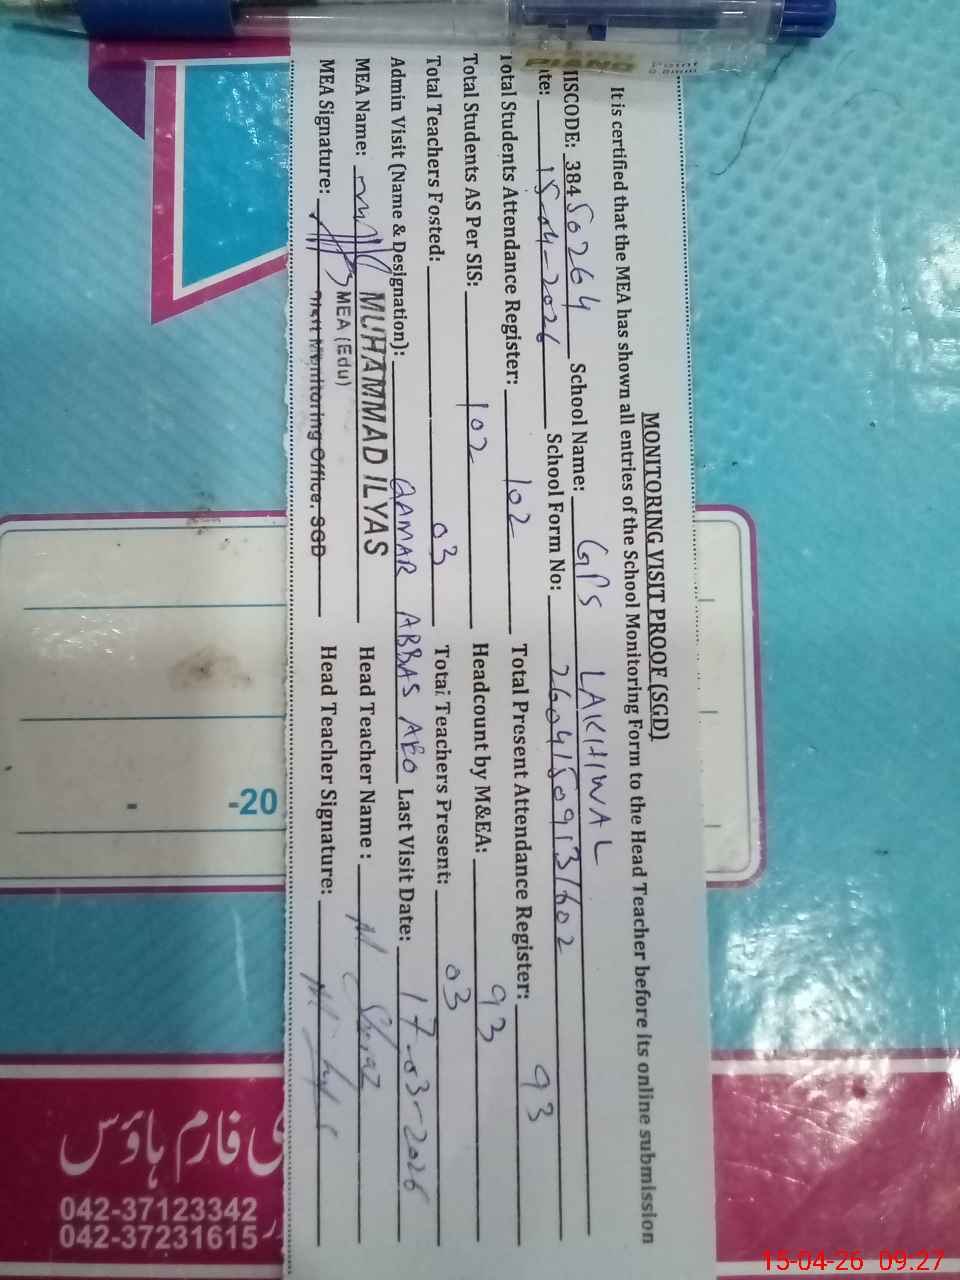 PIANO
Point
0.8mm
MONITORING VISIT PROOF (SGD)
It is certified that the MEA has shown all entries of the School Monitoring Form to the Head Teacher before its online submission
IISCODE: 38450264 School Name: GPS LAKHIWAL
te: 15-04-2026 School Form No: 26041509131602
Total Students Attendance Register: 102 Total Present Attendance Register: 93
Total Students AS Per SIS: 102 Headcount by M&EA: 93
Total Teachers Posted: 03 Total Teachers Present: 03
Admin Visit (Name & Designation): QAMAR ABBAS AEO Last Visit Date: 17-03-2026
MEA Name: MUHAMMAD ILYAS Head Teacher Name:
MEA (Edu)
MEA Signature: Distt Monitoring Office, SGD Head Teacher Signature:
- -20
ی فارم ہاؤس
042-37123342
042-37231615
15-04-26 09:27